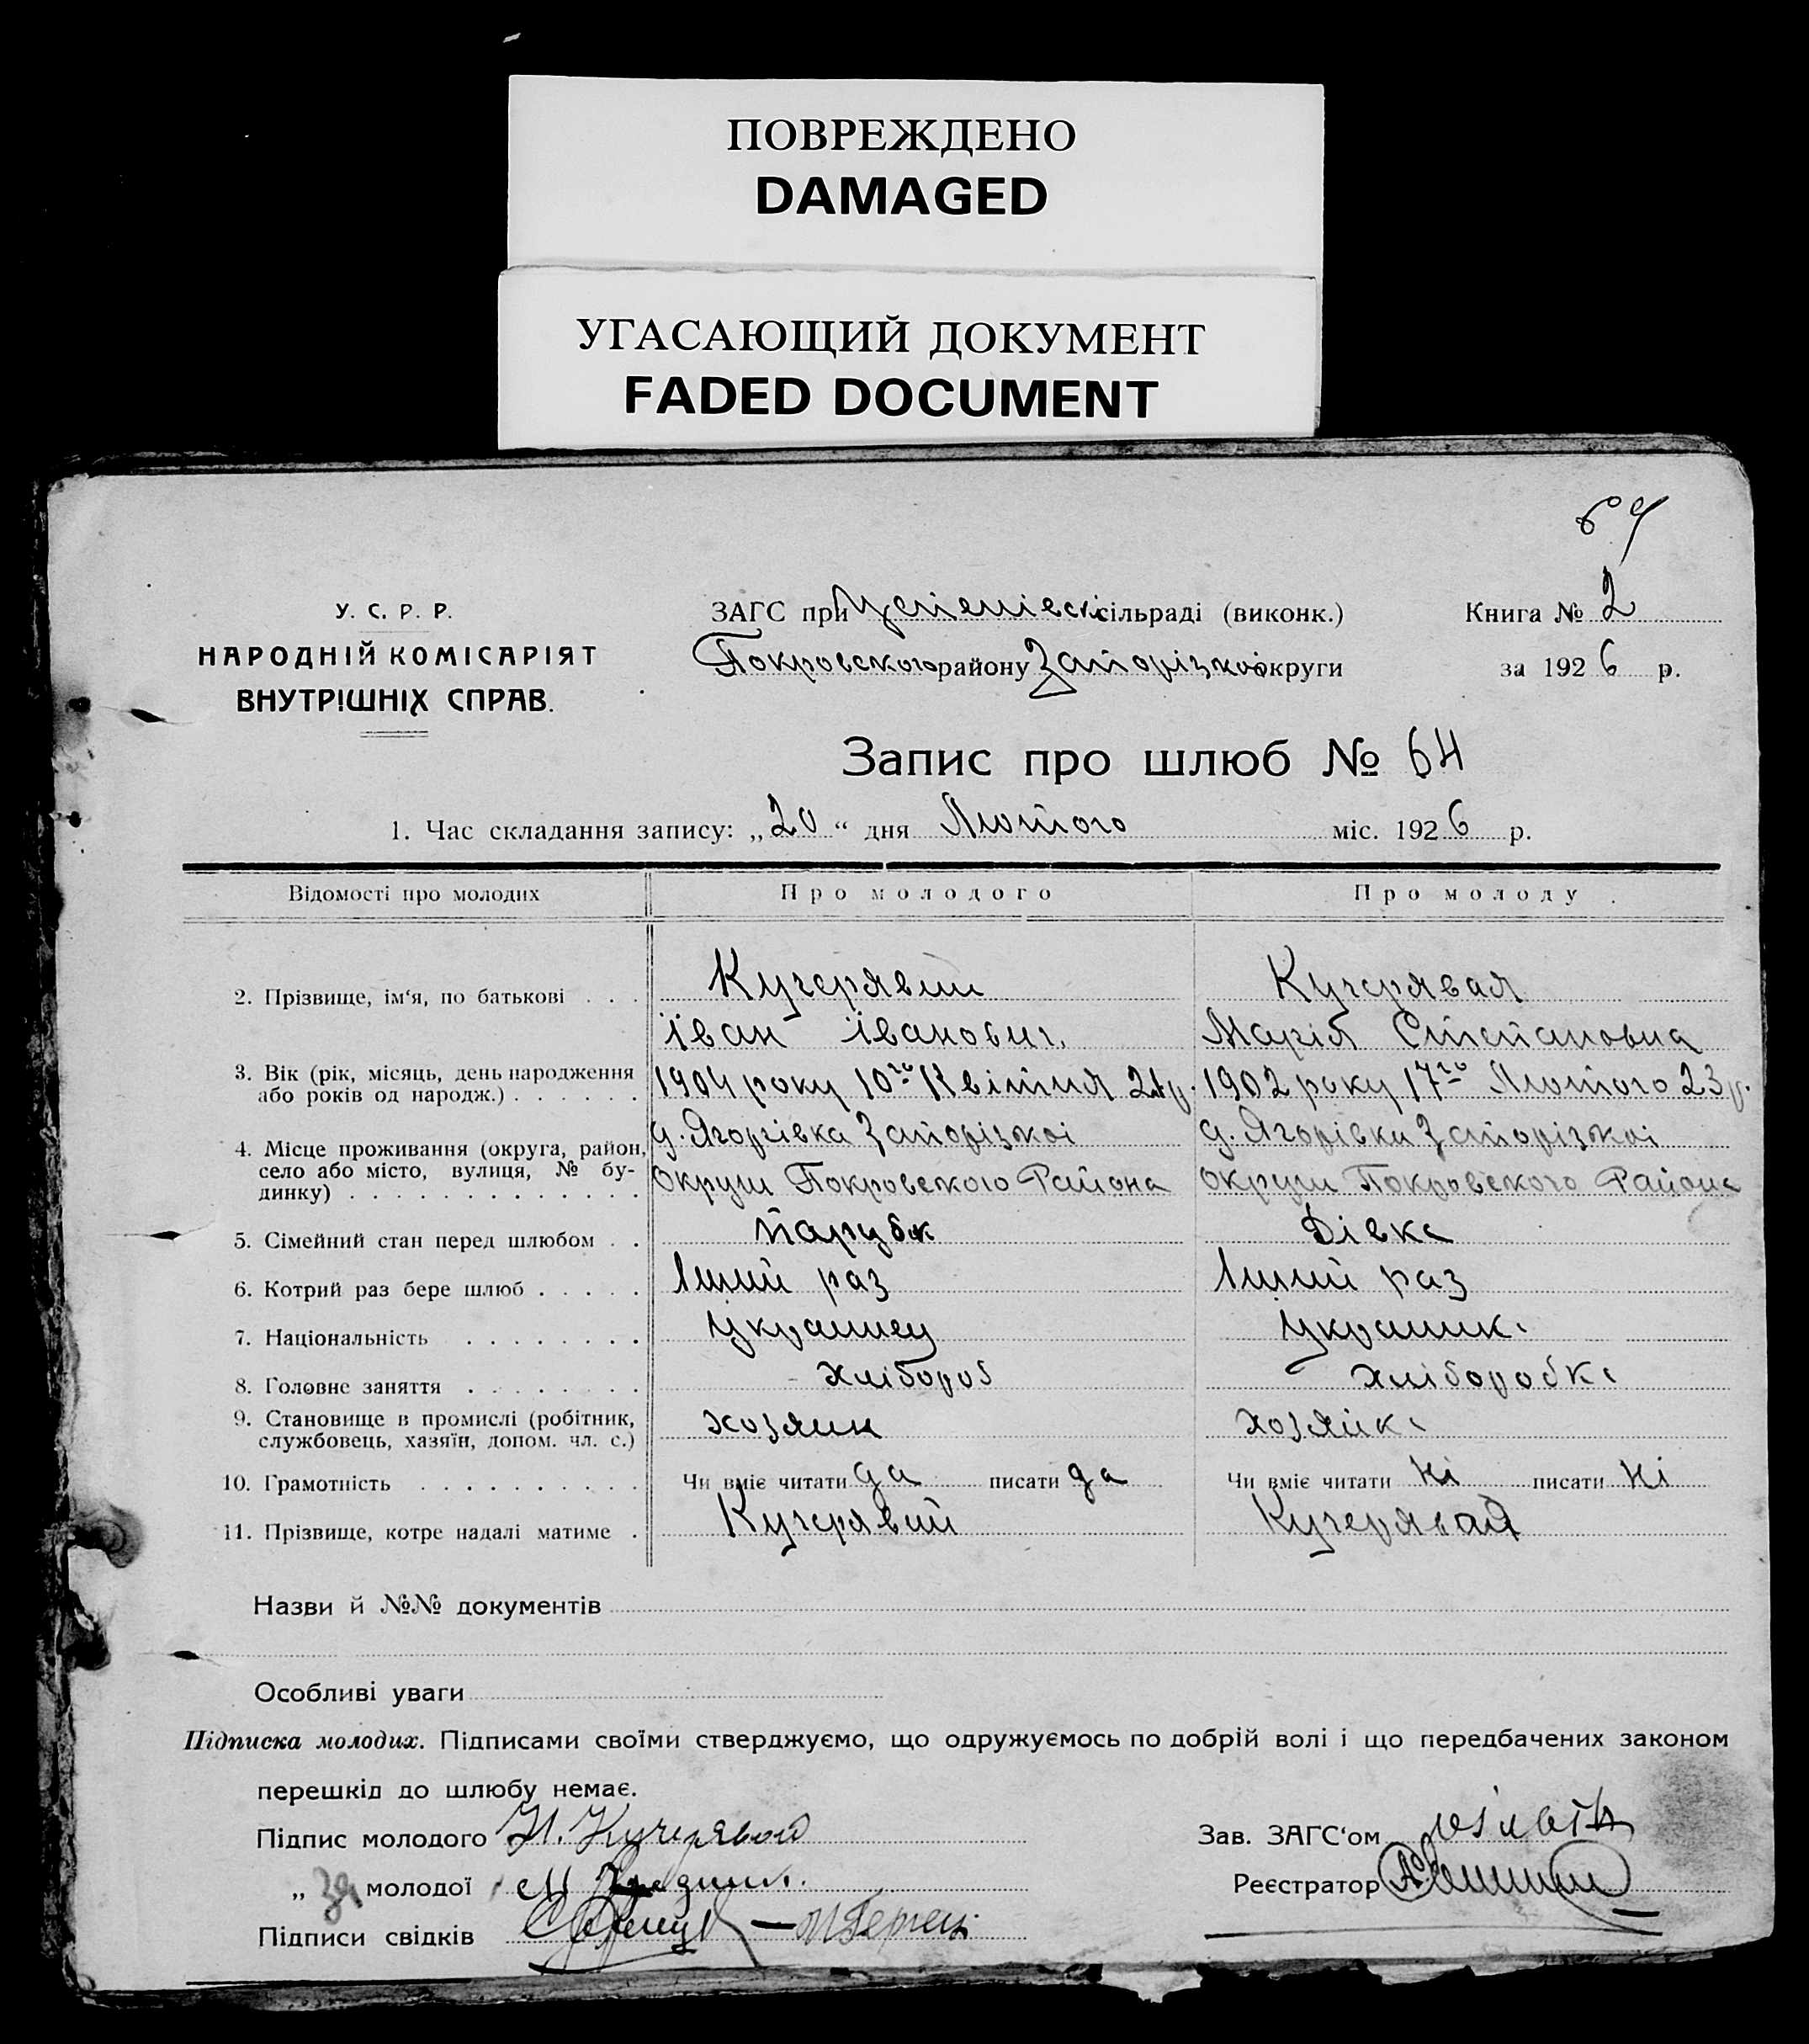 ПОВРЕЖДЕНО
DAMAGED
УГАСАЮЩИЙ ДОКУМЕНТ
FADED DOCUMENT
У. С. Р. Р.
НАРОДНІЙ КОМІСАРІЯТ
ВНУТРІШНІХ СПРАВ.
ЗАГС при сільраді (виконк.)
Покровского району Запорізкої округи
Книга № 2
за 1926 р.
Запис про шлюб № 64
1. Час складання запису: „20“ дня Лютого міс. 1926 р.
Відомості про молодих Про молодого Про молоду
2. Прізвище, ім‘я, по батькові . . . Кучерявий Кучерявая
Іван Іванович. Марія Степановна
3. Вік (рік, місяць, день народження
або років од народж.) . . . . . .
1904 року 10го Квітня 21р. 1902 року 17го Лютого 23р.
4. Місце проживання (округа, район,
село або місто, вулиця, № бу-
динку) . . . . . . . . . . . . .
д. Ягорівка Запорізкоі д. Ягорівки Запорізкоі
Округи Покровского Района Округи Покровского Района
5. Сімейний стан перед шлюбом . . Парубок Дівка
6. Котрий раз бере шлюб . . . . . раз раз
7. Національність . . . . . . . Украинец
8. Головне заняття . . . . . . . . Хлібороб Хліборобка
9. Становище в промислі (робітник,
службовець, хазяїн, допом. чл. с.)
хозяин хозяйка
10. Грамотність . . . . . . . . . . Чи вміє читати да писати да Чи вміє читати Ні писати Ні
11. Прізвище, котре надалі матиме . Кучерявий Кучерявая
Назви й №№ документів
Особливі уваги
Підписка молодих. Підписами своїми стверджуємо, що одружуємось по добрій волі і що передбачених законом
перешкід до шлюбу немає.
Підпис молодого И. Кучерявой
„ За молодої
Підписи свідків
Зав. ЗАГС‘ом
Реєстратор